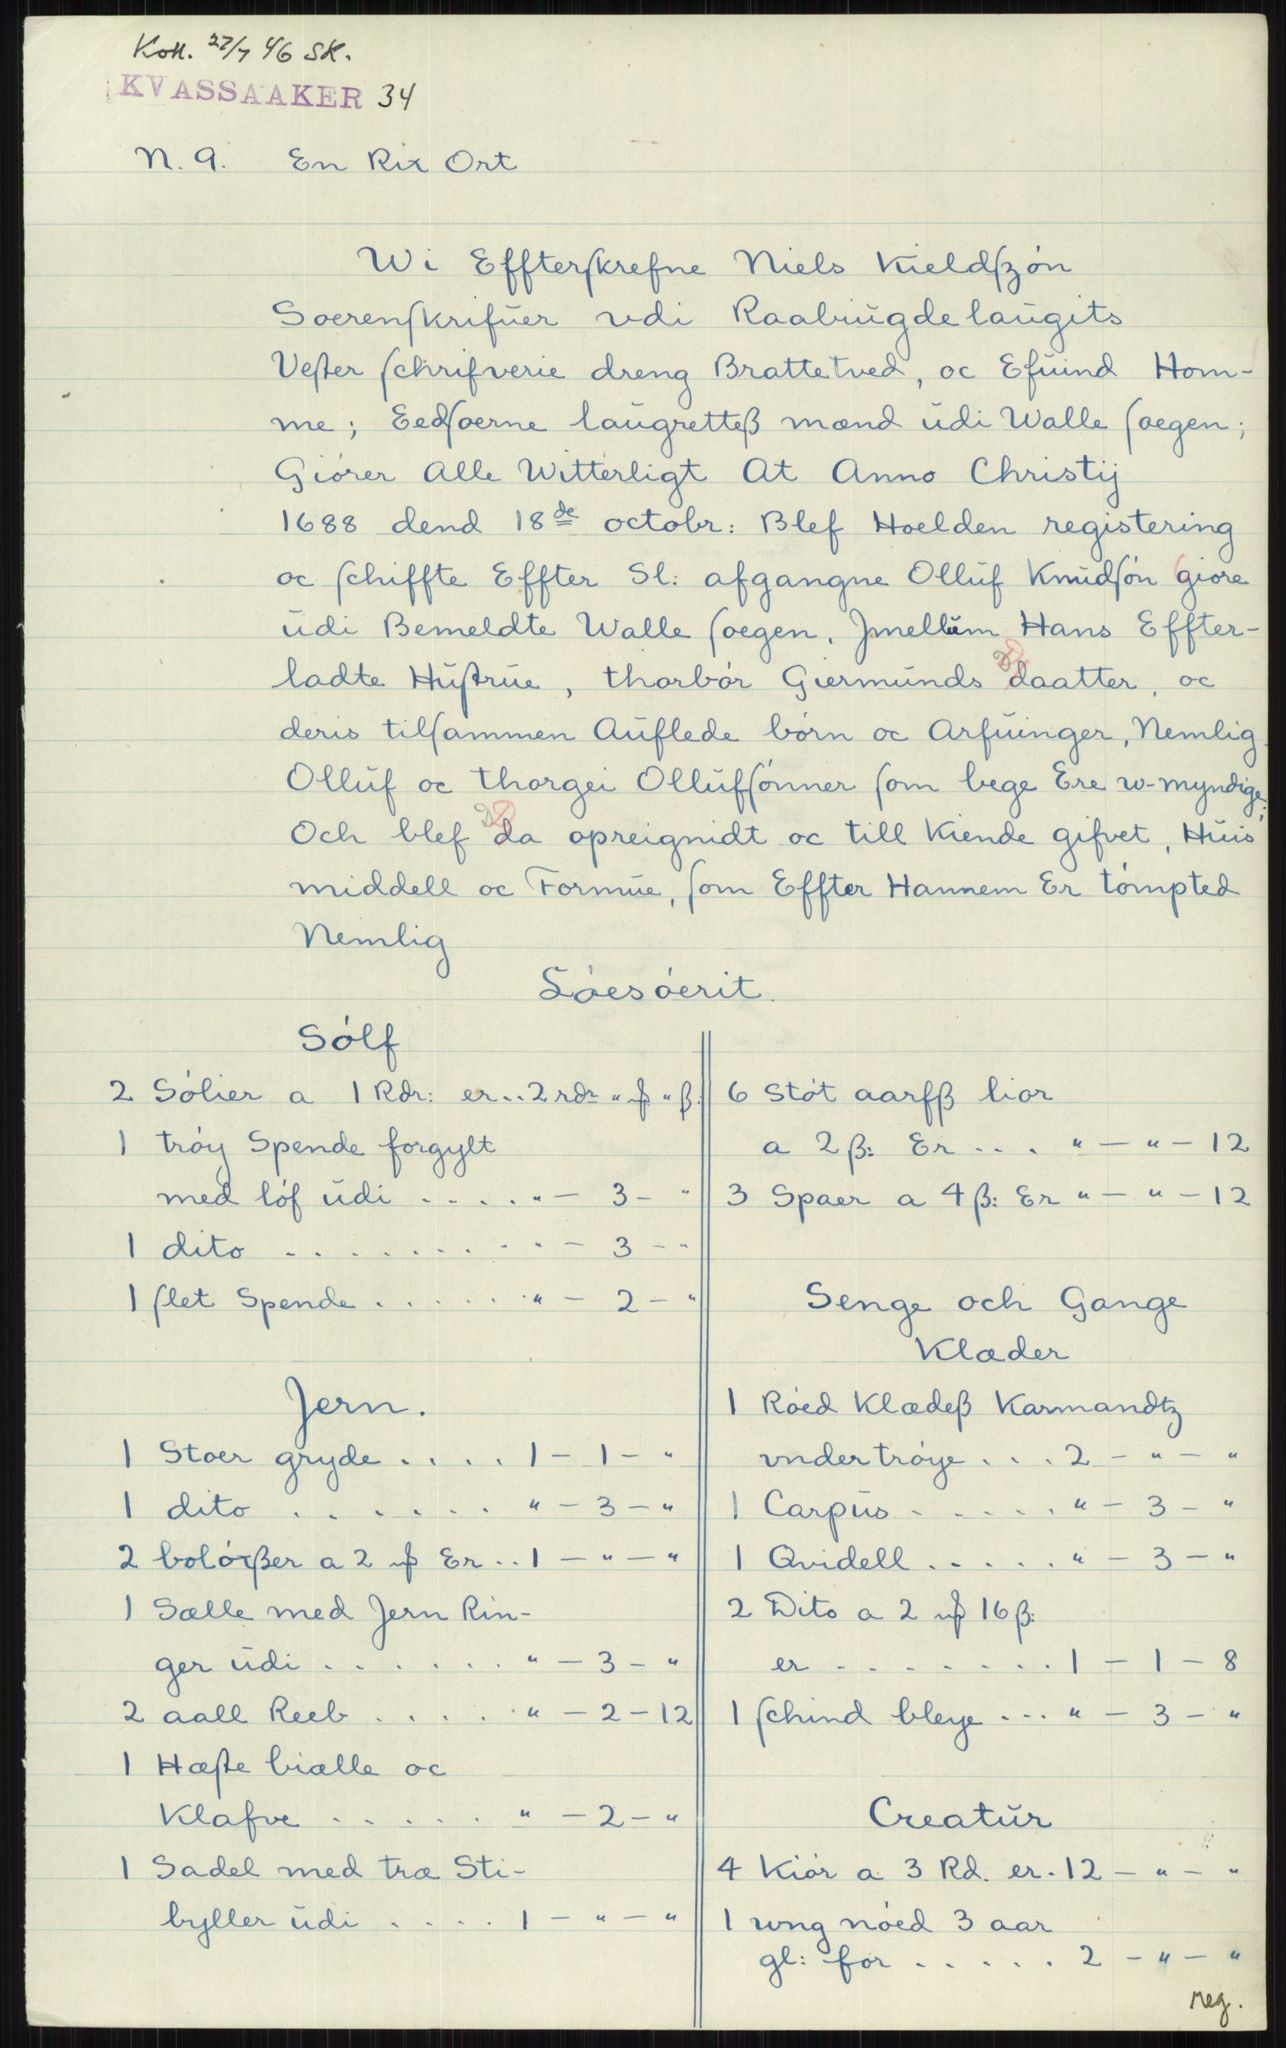 Koll. 27/7 46 SK.
KVASSAAKER 34
N. 9. En Rix Ort
Wi Effterskrefne Niels Kieldszón
Soerenskrifuer vdi Raabiugdelaugits
Vester schrifverie dreng Brattetved, oc Efuind Hom-
me; Eedsoerne laugretteß mænd udi Walle soegen;
Giórer Alle Witterligt At Anno Christij
1688 dend 18de octobr: Blef Hoelden registering
oc schiffte Effter Sl: afgangne Olluf Knudsón giore
udi Bemeldte Walle soegen, Jmellum Hans Effter-
ladte Hustrue, thorbór Giermunds daatter, oc
deris tilsammen Auflede bórn oc Arfuinger, Nemlig
Olluf oc thorgei Ollufsónner som bege Ere w-myndige;
Och blef da opreignidt oc till Kiende gifvet, Huis
middell oc Formue, som Effter Hannem Er tómpted
Nemlig
Sóesóerit.
Sólf
2 Sólier a 1 Rdr: er .. 2 rdr " ₰ " ß:
1 tróy Spende forgylt
med lóf udi . . . . " — 3 — "
1 dito . . . . . . . . . " — 3 — "
1 slet Spende . . . . . . " — 2 — "
Jern.
1 Stoer gryde . . . . 1 — 1 — "
1 dito . . . . . . . " — 3 — "
2 bolóxßer a 2 ₰ Er .. 1 — " — "
1 Sælle med Jern Rin-
ger udi . . . . . . . " — 3 — "
2 aall Reeb . . . . . " — 2 — 12
1 Hæste biælle oc
Klafve . . . . . . " — 2 — "
1 Sadel med træ Sti-
byller udi . . . . 1 — " — "
6 Stót aarfß lior
a 2 ß: Er . . . " — " — 12
3 Spaer a 4 ß: Er " — " — 12
Senge och Gange
Klæder
1 Róed Klædeß Karmandtz
vndertróye . . . 2 — " — "
1 Carpus . . . . . " — 3 — "
1 Qvidell . . . . . " — 3 — "
2 Dito a 2 ₰ 16 ß:
er . . . . . . . . 1 — 1 — 8
1 schind bleye . . . " — 3 — "
Creatur
4 Kiór a 3 Rd. er . 12 — " — "
1 ung nóed 3 aar
gl: for . . . . . 2 — " — "
reg.